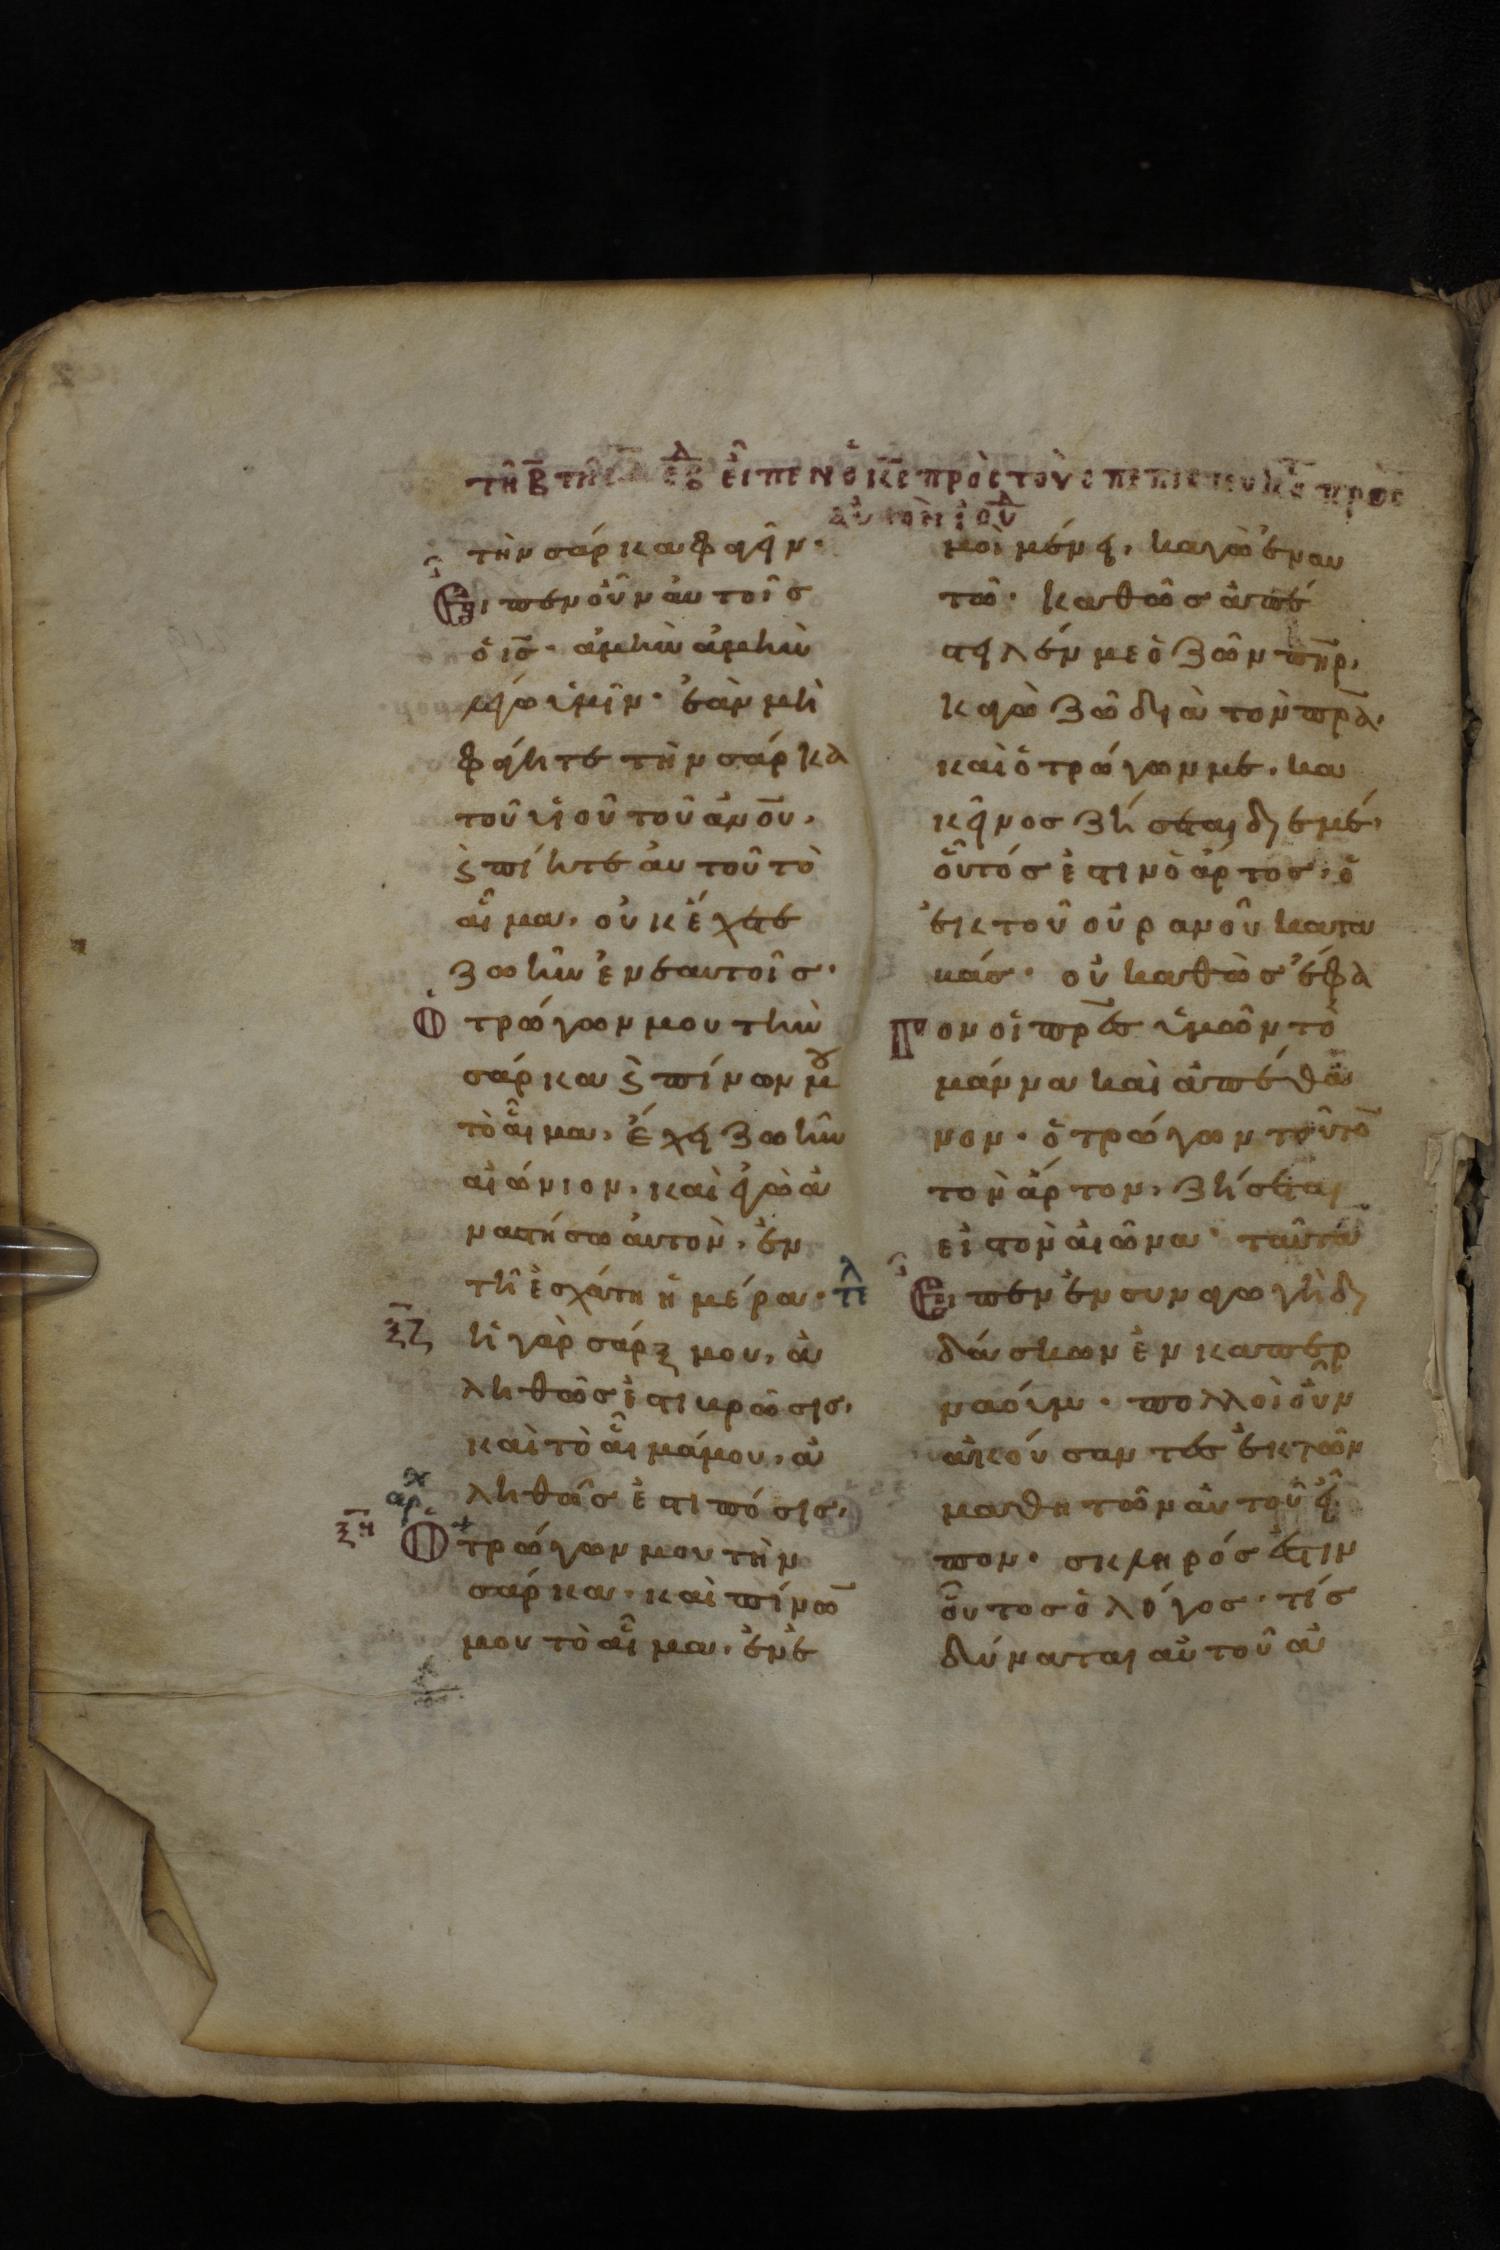 τῆ β τῆς ἑβ εἶπεν ὁ κς πρὸς τοὺς πεπιστευκο πρὸς
αὐτὸν ἰου
τὴν σάρκα φαγεῖν·
Εἶπεν οὖν αὐτοῖσ
ὁ ισ· ἀμὴν ἀμὴν
λέγω ὑμῖν· ἐὰν μὴ
φάγητε τὴν σάρκα
τοῦ υἱοῦ τοῦ ανου,
ϗ πίητε αὐτοῦ τὸ
αἷμα, οὐκ ἔχετε
ζωὴν ἐν ἑαυτοῖσ·
Ὁ τρώγων μου τὴν
σάρκα ϗ πίνων μου
τὸ αἷμα, ἔχει ζωὴν
αἰώνιον, καὶ ἐγὼ ἀ
ναστήσω αὐτὸν, ἐν
τῆ ἐσχάτη ἡμέρα· τε
ξζ ἡ γὰρ σάρξ μου, ἀ
ληθῶσ ἐστι βρῶσισ,
καὶ τὸ αἷμά μου, ἀ
ληθῶσ ἐστι πόσισ,
αρχ
ξη Ὁ τρώγων μου τὴν
σάρκα· καὶ πίνων
μου τὸ αἷμα, ἐν ἐ
μοὶ μένει, καγὼ ἐν αυ
τῶ· καθὼσ ἀπέ
στειλέν με ὁ ζῶν πηρ,
καγὼ ζῶ διὰ τὸν πρα,
καὶ ὁ τρώγων με, κα
κεῖνοσ ζήσεται δι ἐμέ,
οὗτόσ ἐστιν ὁ ἄρτοσ, ὁ
ἐκ τοῦ οὐρανοῦ κατα
βάσ· οὐ καθὼσ ἔφα
γον οἱ πρεσ ὑμῶν τὸ
μάννα καὶ ἀπέθα
νον· ὁ τρώγων τοῦτον
τὸν ἄρτον, ζήσεται
εἰσ τὸν αἰῶνα· ταῦτα
Εἶπεν ἐν συναγωγῆ δι
δάσκων ἐν καπερ
ναούμ· πολλοὶ οὖν
ἀκούσαντεσ ἐκ τῶν
μαθητῶν αὐτοῦ εἶ
πον· σκληρόσ ἐστιν
οὗτοσ ὁ λόγοσ· τίσ
δύναται αὐτοῦ ἀ